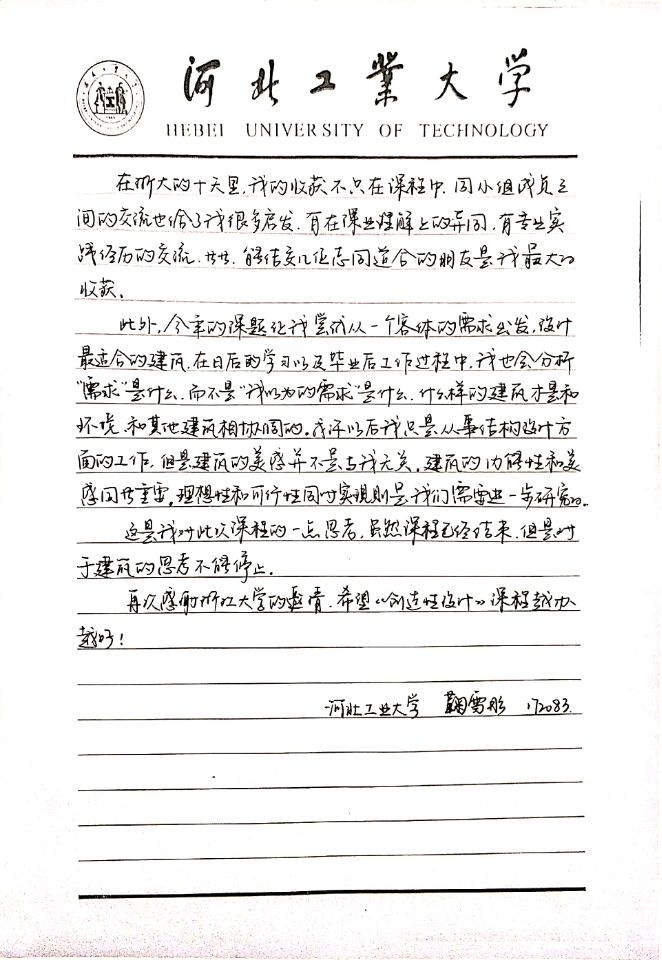 河北工業大学
HEBEI UNIVERSITY OF TECHNOLOGY
在浙大的十天里，我的收获不只在课程中，同小组成员之
间的交流也给了我很多启发，有在课业理解上的异同，有专业实
践经历的交流，共，能结交几位志同道合的朋友是我最大的
收获。
此外，今年的课题让我尝试从一个客体的需求出发，设计
最适合的建筑，在日后的学习以及毕业后工作过程中，我也会分析
“需求”是什么，而不是“我以为的需求”是什么，什么样的建筑才是和
环境、和其他建筑相协同的。或许以后我只是从事结构设计方
面的工作，但是建筑的美感并不是与我无关，建筑的功能性和美
感同共重要，理想性和可行性同时实现则是我们需要进一步研究的。
这是我对此次课程的一点思考，虽然课程已经结束，但是对
于建筑的思考不能停止。
再次感谢浙江大学的邀请，希望《创造性设计》课程越办
越好！
河北工业大学 鞠雪彤 172083